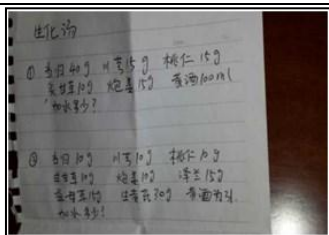 生化汤
① 当归40g 川芎15g 桃仁15g
炙甘草10g 炮姜15g 黄酒100ml
加水多少?
② 当归10g 川芎10g 桃仁10g
炙甘草10g 炮姜10g 泽兰15g
益母草15g 生黄芪30g 黄酒为引
加水多少?